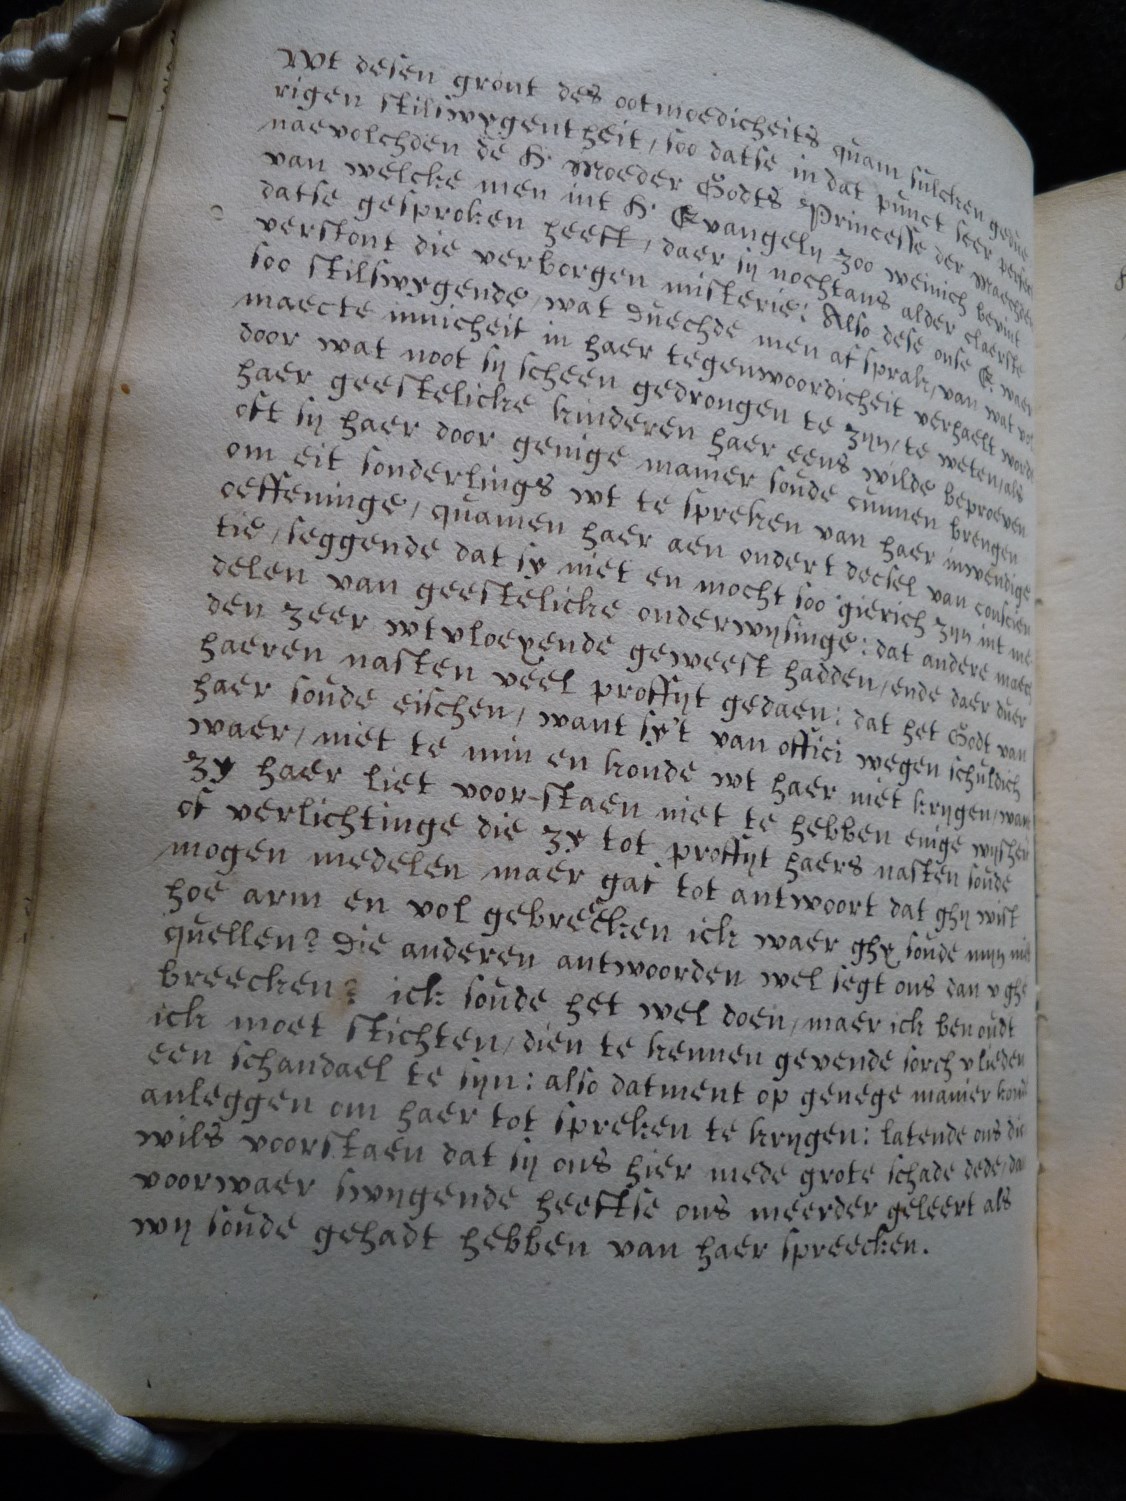 Wt desen gront des ootmoedicheits quam sulcken gedue
rigen stilswygentheit, soo datse in dat punct seer perfect
naevolchden de H. Moeder Godts Princesse der Maechden
van welcke men int H. Evangely zoo weinich bevint
datse gesproken heeft, daer sij nochtans alder claerste
verstont die verborgen misterie: Also dese onse E. waer
soo stilswygende, wat duechde men af sprak, van wat vol
maecte innicheit in haer tegenwoordicheit verhaelt worde
door wat noot sij scheen gedrongen te zijn, te weten, als
haer geestelicke kinderen haer eens wilde beproeven
oft sij haer door genige manier soude cunnen brengen
om eit sonderlings wt te spreken van haer inwendige
oeffeninge, quamen haer aen ondert decsel van conscien
tie, seggende dat sy niet en mocht soo gierich zijn int me
delen van geestelicke onderwijsinge: dat andere maech
den zeer wtvloeyende geweest hadden, ende daer duer
haeren nasten veel proffijt gedaen: dat het Godt van
haer soude eischen, want sy't van offici wegen schuldich
waer, niet te min en konde wt haer niet krijgen, want
zy haer liet voor-staen niet te hebben enige wijsheit
of verlichtinge die zy tot proffijt haers nasten soude
mogen medelen maer gaf tot antwoort dat ghij wist
hoe arm en vol gebreecken ick waer ghy soude mijn niet
quellen? Die anderen antwoorden wel segt ons dan v ghe
breecken? ick soude het wel doen, maer ick ben oudt
ick moet stichten, dien te kennen gevende sorchvlieden
een schandael te sijn: also datment op genege manier konde
anleggen om haer tot spreken te krijgen: latende ons die
wils voorstaen dat sij ons hier mede grote schade dede, dan
voorwaer swijgende heeftse ons meerder geleert als
wij soude gehadt hebben van haer spreecken.